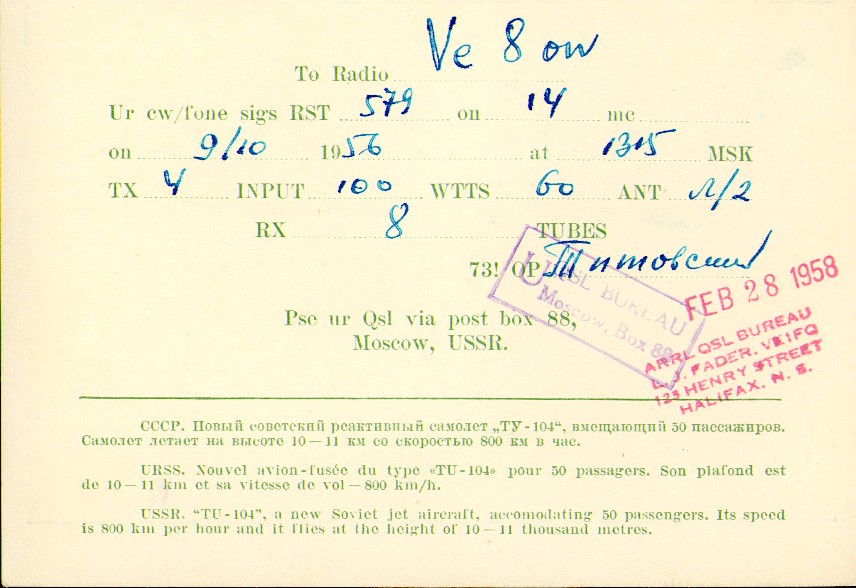 To Radio Ve 8 ow
Ur cw/fone sigs RST 579 on 14 mc
on 9/10 1956 at 1315 MSK
TX 4 INPUT 100 WTTS 60 ANT λ/2
RX 8 TUBES
73! OP Титовский
U QSL BUREAU
Moscow, Box 88
FEB 28 1958
Pse ur Qsl via post box 88,
Moscow, USSR.
ARRL QSL BUREAU
FADER, VE1FQ
123 HENRY STREET
HALIFAX, N. S.
СССР. Новый советский реактивный самолет „ТУ-104“, вмещающий 50 пассажиров.
Самолет летает на высоте 10—11 км со скоростью 800 км в час.
URSS. Nouvel avion-fusée du type «TU-104» pour 50 passagers. Son plafond est
de 10—11 km et sa vitesse de vol—800 km/h.
USSR. "TU-104", a new Soviet jet aircraft, accomodating 50 passengers. Its speed
is 800 km per hour and it flies at the height of 10—11 thousand metres.